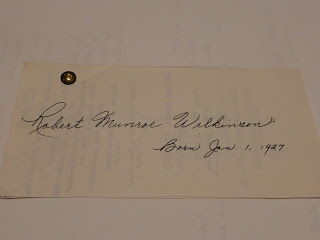 Robert Munroe Wilkinson
Born Jan. 1, 1927